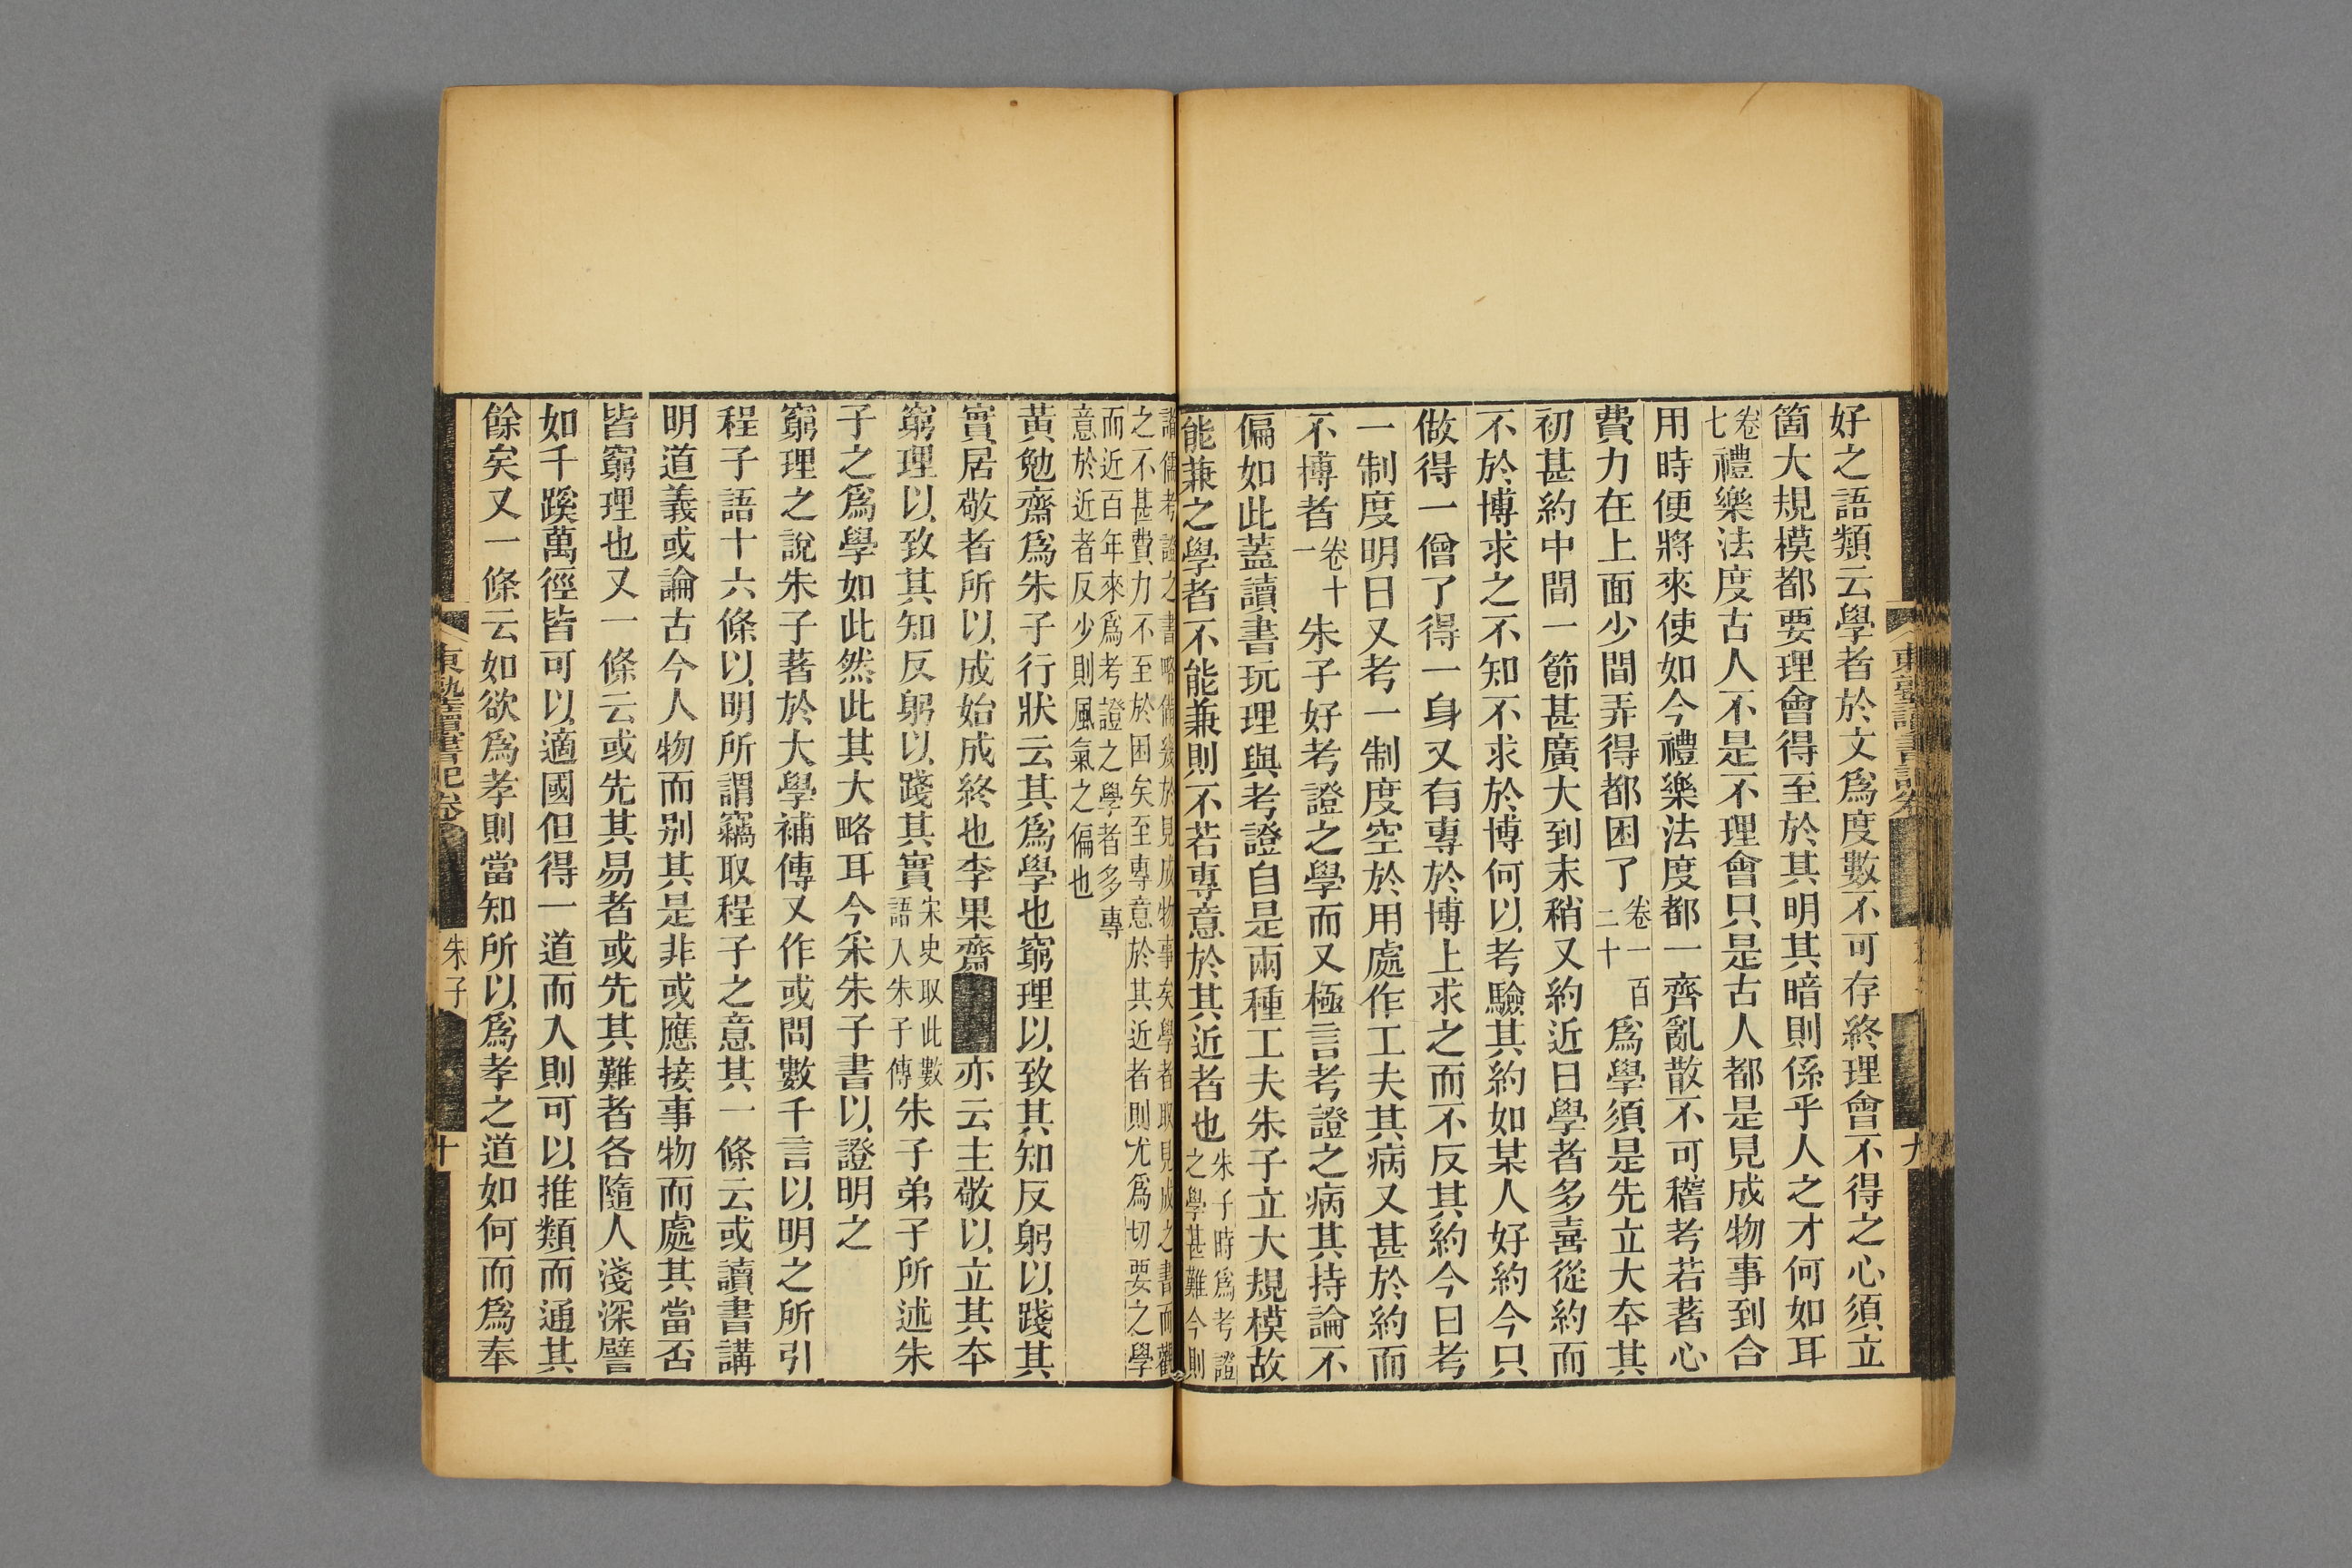 好之語類云學者於文爲度數不可存終理會不得之心須立
箇大規模都要理會得至於其明其暗則係乎人之才何如耳
卷七禮樂法度古人不是不理會只是古人都是見成物事到合
用時便將來使如今禮樂法度都一齊亂散不可稽考若著心
費力在上面少間弄得都困了卷一百二十爲學須是先立大夲其
初甚約中間一節甚廣大到末稍又約近日學者多喜從約而
不於博求之不知不求於博何以考驗其約如某人好約今只
做得一僧了得一身又有專於博上求之而不反其約今日考
一制度明日又考一制度空於用處作工夫其病又甚於約而
不博者卷十一朱子好考證之學而又極言考證之病其持論不
偏如此蓋讀書玩理與考證自是兩種工夫朱子立大規模故
能兼之學者不能兼則不若專意於其近者也朱子時爲考證
之學甚難今則
諸儒考證之書略備幾於見成物事矣學者取見成之書而觀
之不甚費力不至於困矣至專意於其近者則尤爲切要之學
而近百年來爲考證之學者多專
意於近者反少則風氣之偏也
黃勉齋爲朱子行狀云其爲學也窮理以致其知反躬以踐其
實居敬者所以成始成終也李果齋亦云主敬以立其夲
窮理以致其知反躬以踐其實宋史取此數語入朱子傳朱子弟子所述朱
子之爲學如此然此其大略耳今采朱子書以證明之
窮理之說朱子著於大學補傳又作或問數千言以明之所引
程子語十六條以明所謂竊取程子之意其一條云或讀書講
明道義或論古今人物而别其是非或應接事物而處其當否
皆窮理也又一條云或先其易者或先其難者各隨人淺深譬
如千蹊萬徑皆可以適國但得一道而入則可以推類而通其
餘矣又一條云如欲爲孝則當知所以爲孝之道如何而爲奉
東塾讀書記卷
朱子
十